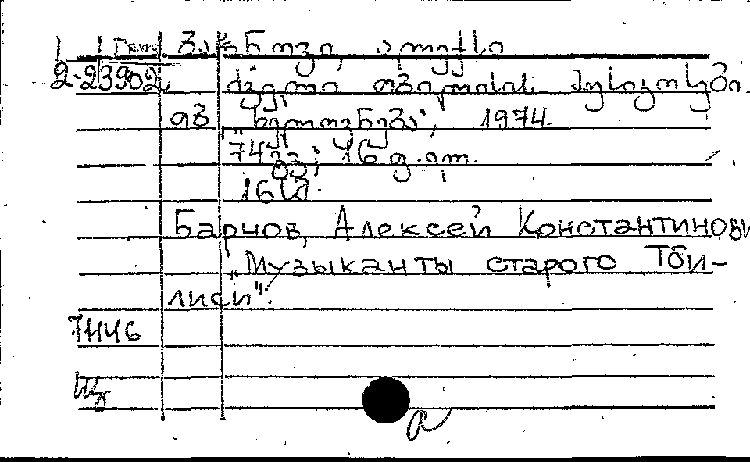 ბარნოვი, ალექსი
2-23902 ძველი თბილისის მუსიკოსები.
თბ "ხელოვნება", 1974.
74გვ; 16 გ. ილ.
16
Барнов, Алексей Константинови
"Музыканты старого Тби-
лиси".
7446